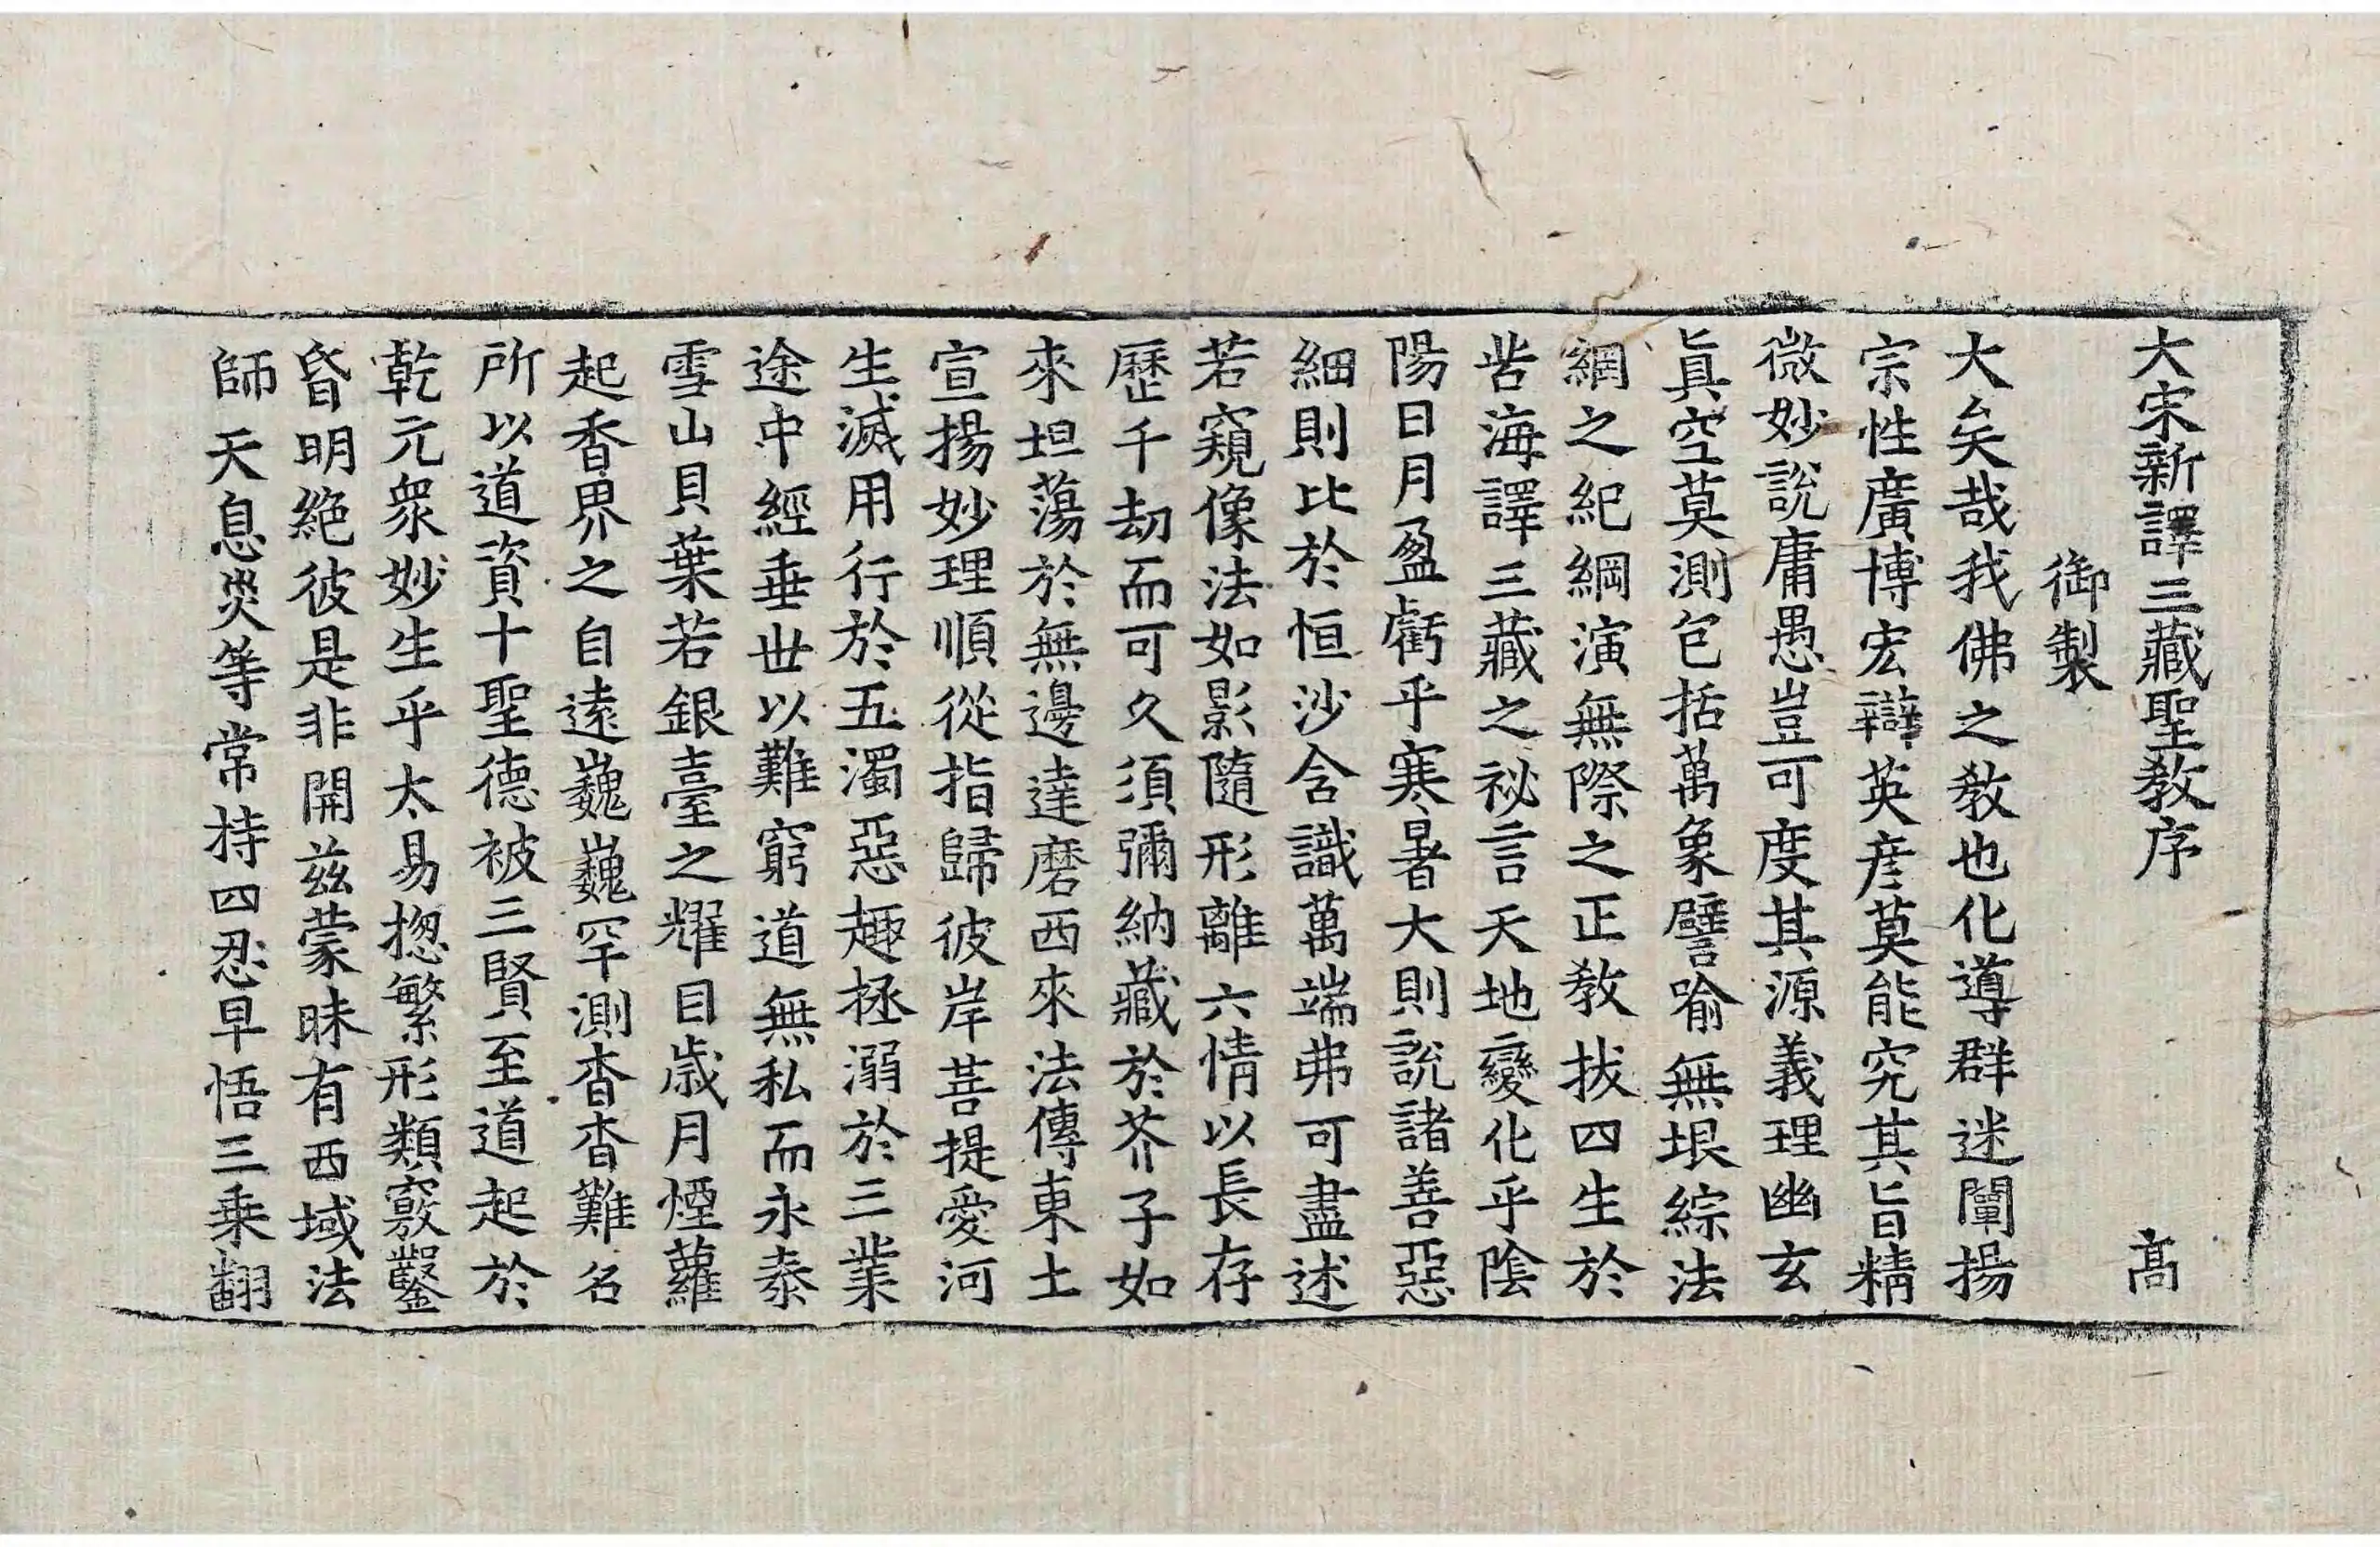 大宋新譯三藏聖教序 高
御製
大矣哉我佛之教也化導群迷闡揚
宗性廣博宏辯英彦莫能究其旨精
微妙說庸愚豈可度其源義理幽玄
眞空莫測包括萬象譬喻無垠綜法
網之紀綱演無際之正教拔四生於
苦海譯三藏之祕言天地變化乎陰
陽日月盈虧乎寒暑大則說諸善惡
細則比於恒沙含識萬端弗可盡述
若窺像法如影隨形離六情以長存
歷千劫而可久須彌納藏於芥子如
來坦蕩於無邊達磨西來法傳東土
宣揚妙理順從指歸彼岸菩提愛河
生滅用行於五濁惡趣拯溺於三業
途中經垂世以難窮道無私而永泰
雪山貝葉若銀臺之耀目歲月煙蘿
起香界之自遠巍巍罕測杳杳難名
所以道資十聖德被三賢至道起於
乾元衆妙生乎太易揔繁形類竅鑿
昏明絕彼是非開兹蒙昧有西域法
師天息災等常持四忍早悟三乘翻